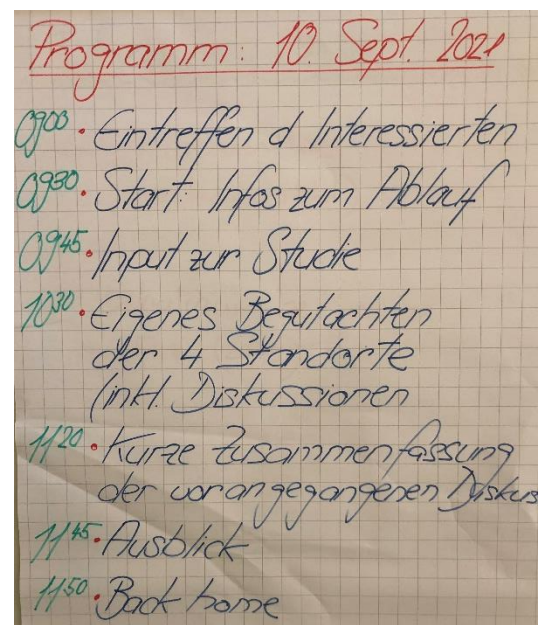 Programm: 10. Sept. 2021
09⁰⁰ • Eintreffen d Interessierten
09³⁰ • Start: Infos zum Ablauf
09⁴⁵ • Input zur Studie
10³⁰ • Eigenes Begutachten
der 4 Standorte
(inkl. Diskussionen
11²⁰ • Kurze Zusammenfassung
der vorangegangenen Diskus
11⁴⁵ • Ausblick
11⁵⁰ • Back home